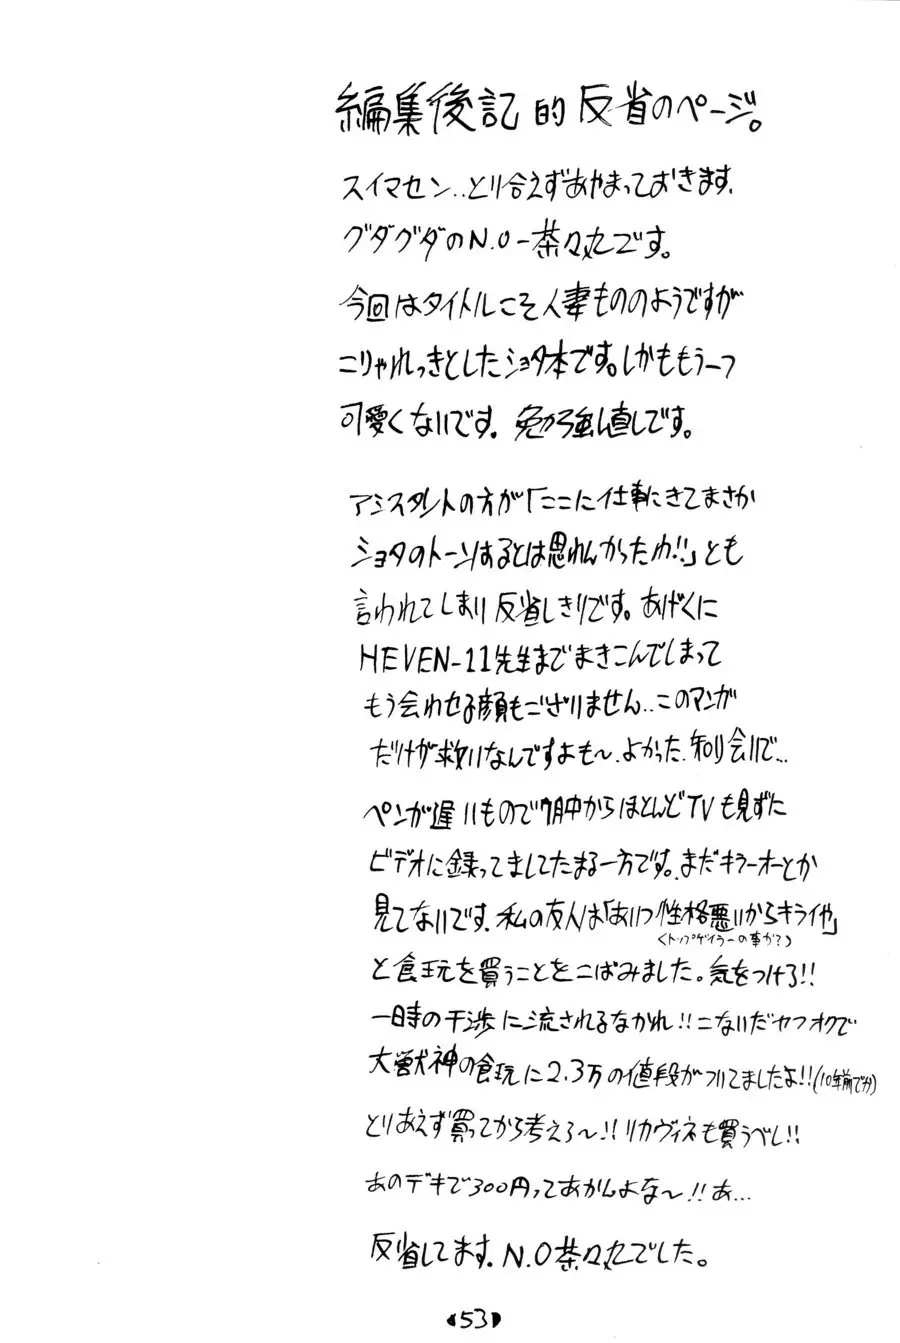 編集後記的反省のページ。
スイマセン..とり合えずあやまっておきます.
グダグダのN.O-茶々丸です。
今回はタイトルこそ人妻もののようですが
こりゃれっきとしたショタ本です。しかももう一つ
可愛くないです. 勉強し直しです。
アシスタントの方が「ここに仕事にきてまさか
ショタのトーンはるとは思わんかったわ!!」とも
言われてしまい反省しきりです。あげくに
HEVEN-11先生までまきこんでしまって
もう会わせる顔もございません..このマンガ
だけが救いなんですよも〜.よかった.知り合いで...
ペンが遅いもので期中からほとんどTVも見ずに
ビデオに録ってましてたまる一方です。まだキラーオーとか
見てないです.私の友人は「あいつ性格悪いからキライや」
<トップゲイラーの事か?>
と食玩を買うことをこばみました。気をつけろ!!
一時の干渉に流されるなかれ!!こないだヤフオクで
大獣神の食玩に2.3万の値段がついてましたよ!!(10年前で分)
とりあえず買ってから考えろ〜!!リカヴィネも買うべし!!
あのデキで300円ってあかんよな〜!!あ...
反省してます.N.O茶々丸でした。
53